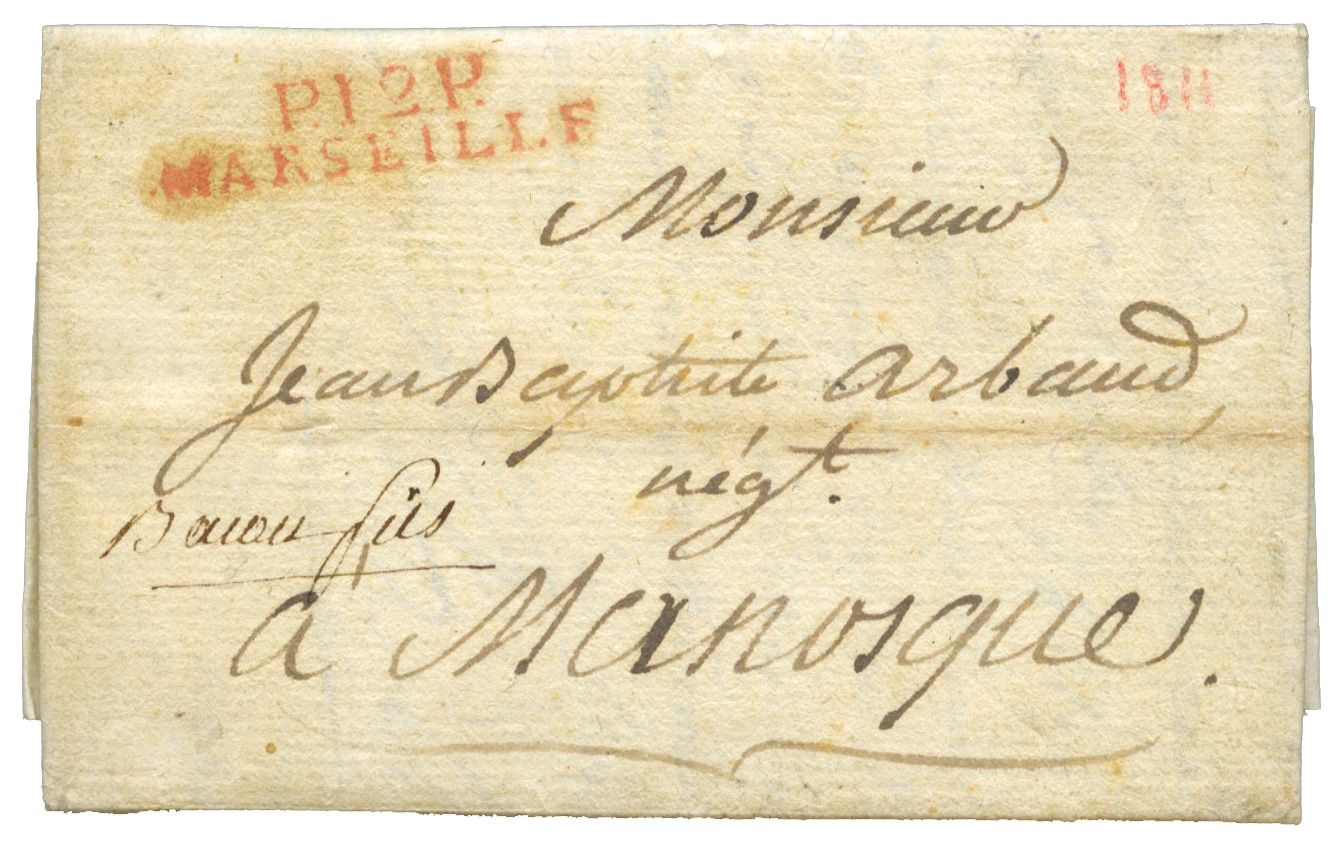 P.12.P.
MARSEILLE
1811
Monsieur
Jean Baptiste Arbaud,
négt.
fils
a Manosque.